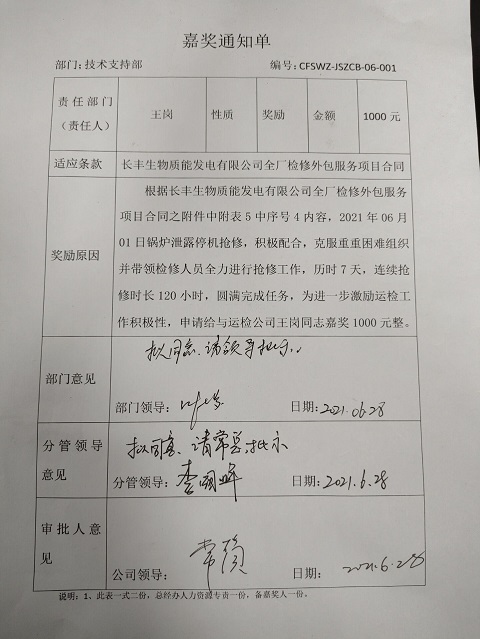 嘉奖通知单
部门：技术支持部 编号：CFSWZ-JSZCB-06-001
责任部门（责任人） 王岗 性质 奖励 金额 1000 元
适应条款 长丰生物质能发电有限公司全厂检修外包服务项目合同
奖励原因
根据长丰生物质能发电有限公司全厂检修外包服务
项目合同之附件中附表 5 中序号 4 内容，2021 年 06 月
01 日锅炉泄露停机抢修，积极配合，克服重重困难组织
并带领检修人员全力进行抢修工作，历时 7 天，连续抢
修时长 120 小时，圆满完成任务，为进一步激励运检工
作积极性，申请给与运检公司王岗同志嘉奖 1000 元整。
部门意见
拟同意、请领导批示。
部门领导： 日期：2021.06.28
分管领导意见
拟同意、请常总批示
分管领导：李国辉 日期：2021.6.28
审批人意见
公司领导： 日期：2021.6.28
说明：1、此表一式二份，总经办人力资源专责一份，备嘉奖人一份。